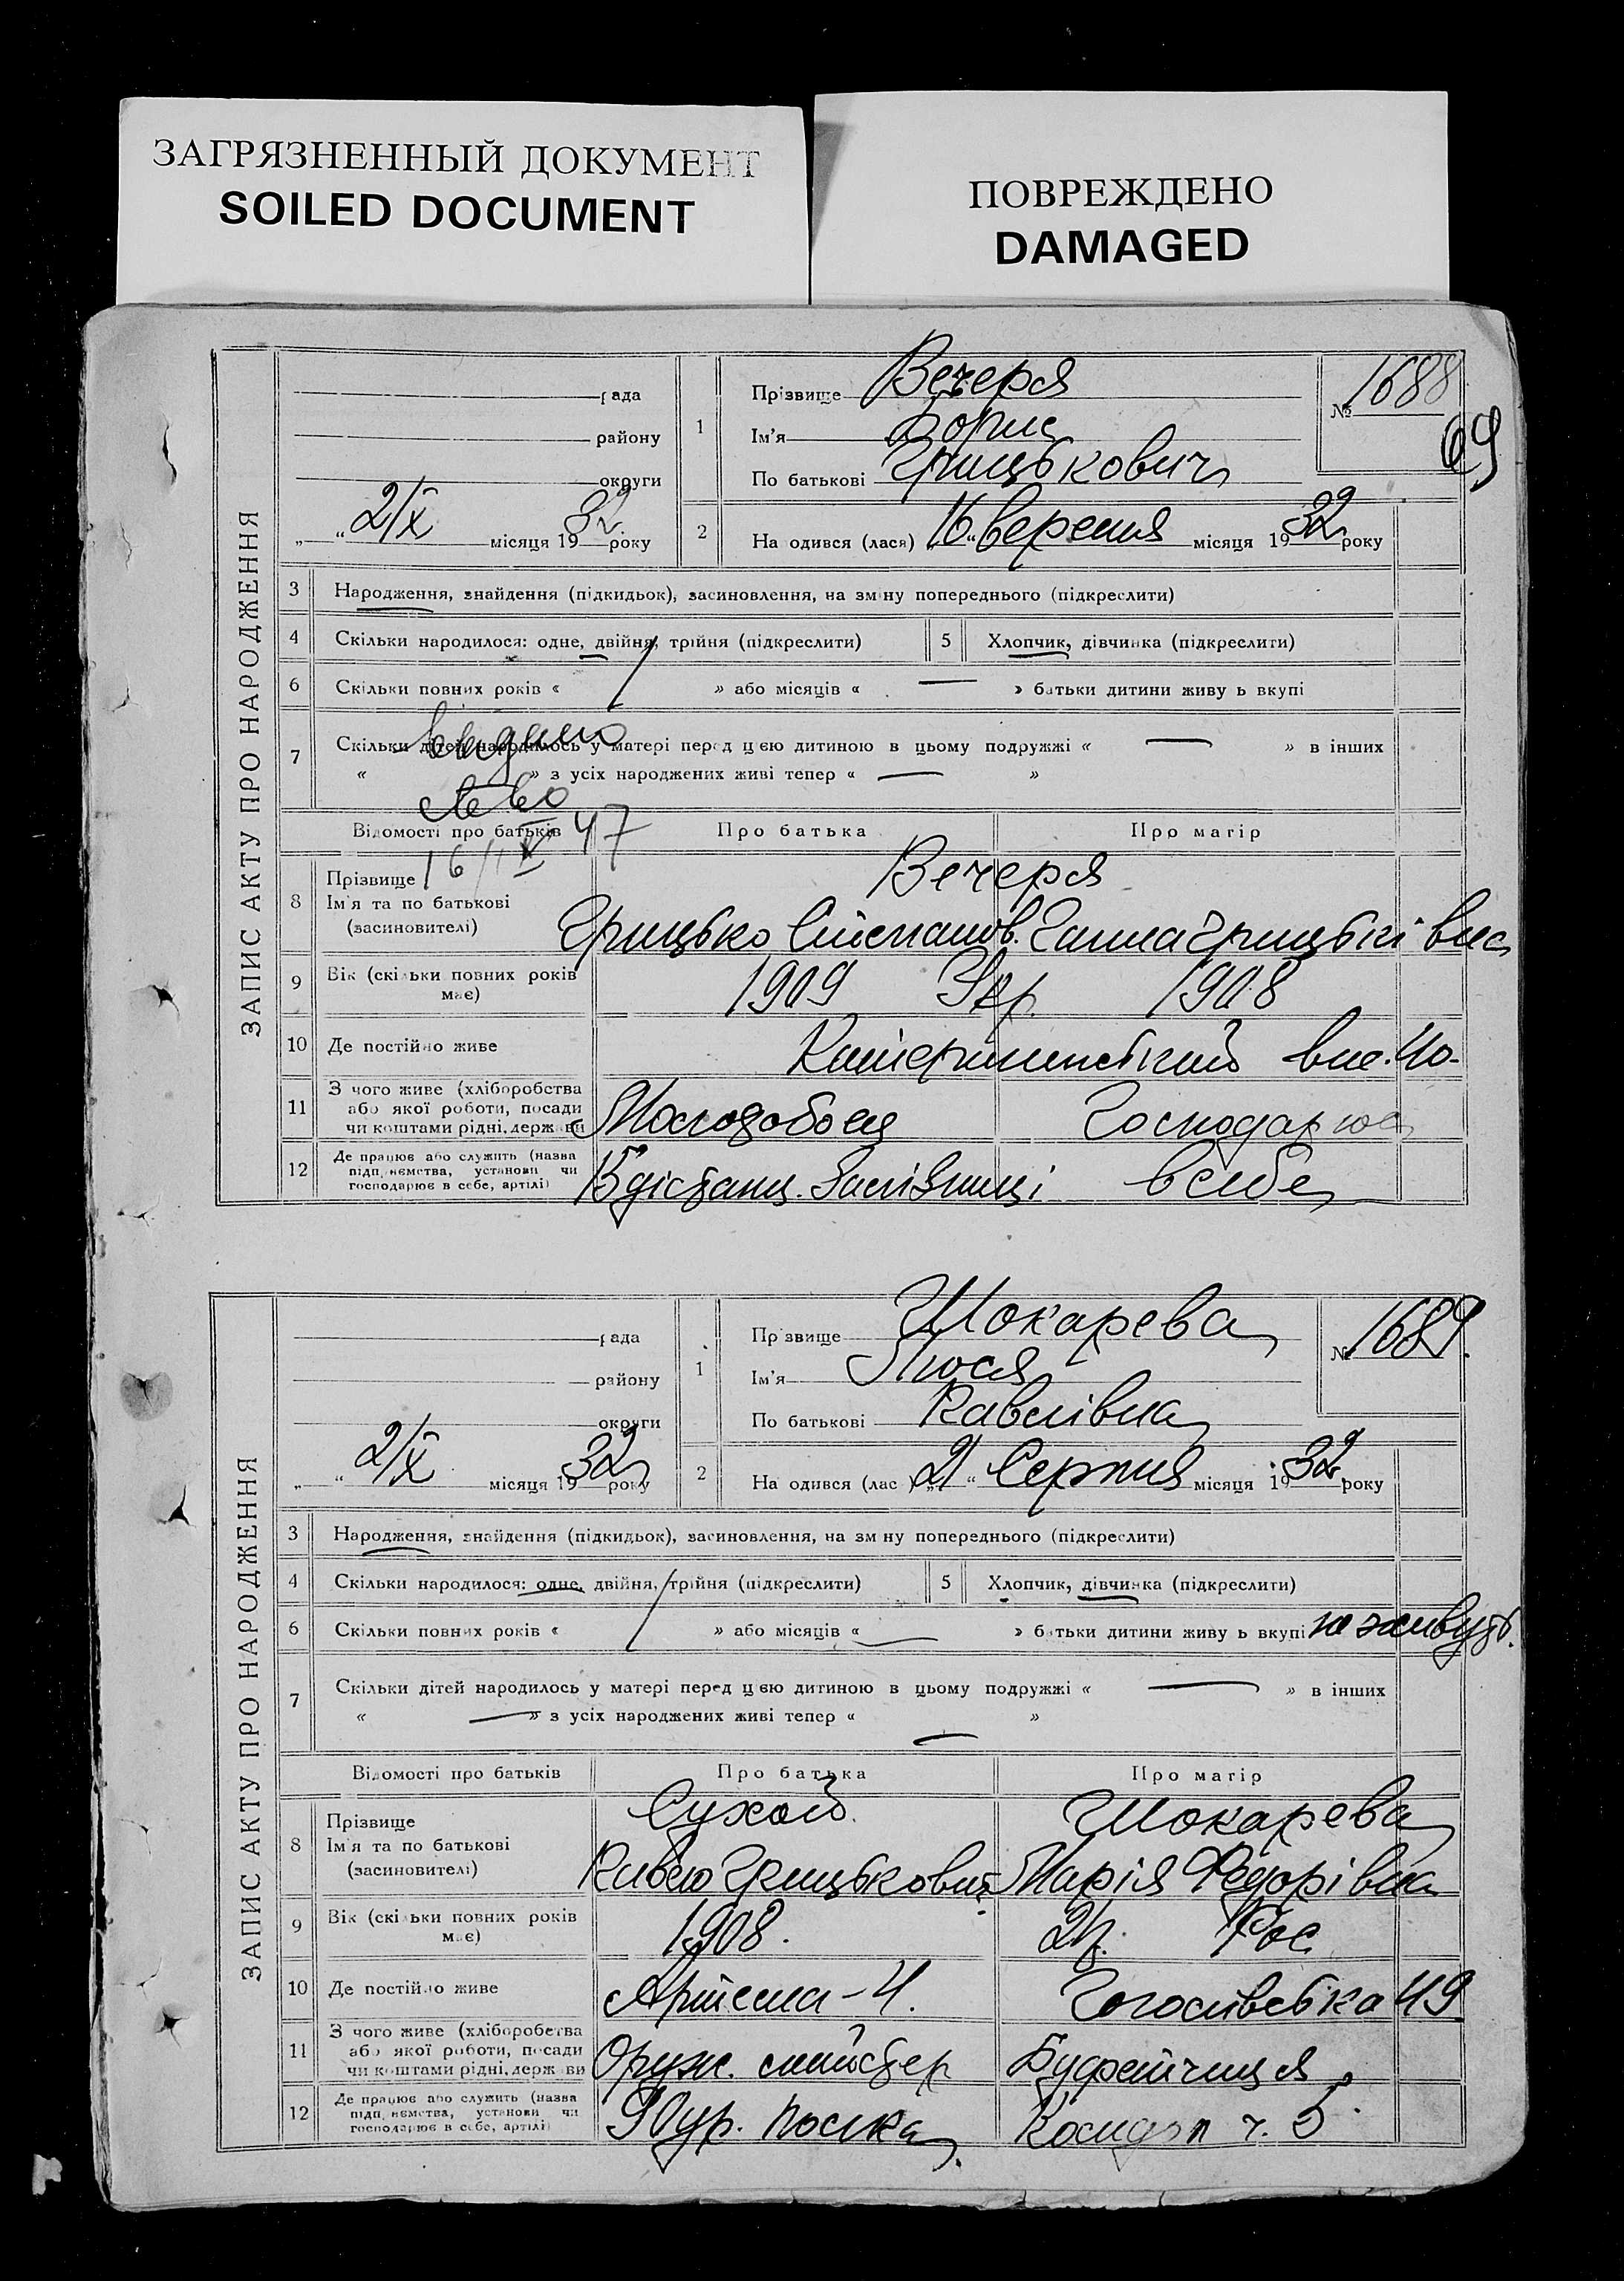 ЗАГРЯЗНЕННЫЙ ДОКУМЕНТ
SOILED DOCUMENT
ПОВРЕЖДЕНО
DAMAGED
ЗАПИС АКТУ ПРО НАРОДЖЕННЯ
рада
району
округи
„ “ 2/X місяця 1932 року
1
Прізвище Вечеря
Ім'я Борис
По батькові Грицькович
№ 1688
69
2 На одився (лася) „16“ вересня місяця 1932 року
3 Народження, знайдення (підкидьок), засиновлення, на зміну попереднього (підкреслити)
4 Скільки народилося: одне, двійня, трійня (підкреслити) 5 Хлопчик, дівчинка (підкреслити)
6 Скільки повних років « » або місяців « — » батьки дитини живу ь вкупі
7 Скільки дітей народилось у матері перед цією дитиною в цьому подружжі « — » в інших
« » з усіх народжених живі тепер « — »
47
Відомості про батьків Про батька Про матір
8 Прізвище
Ім'я та по батькові
(засиновителі)
Вечеря
Грицько Степанов. Ганна Грицьківна
9 Вік (скільки повних років має) 1909 Укр. 1908
10 Де постійно живе
11 З чого живе (хліборобства або якої роботи, посади чи коштами рідні, держави Господарює
12 Де працює або служить (назва підприємства, установи чи господарює в себе, артілі) в себе
ЗАПИС АКТУ ПРО НАРОДЖЕННЯ
рада
району
округи
„ “ 2/X місяця 1932 року
1
Прізвище Шокарева
Ім'я Люся
По батькові Павлівна
№ 1689.
2 На одився (лас ) „21“ Серпня місяця 1932 року
3 Народження, знайдення (підкидьок), засиновлення, на зміну попереднього (підкреслити)
4 Скільки народилося: одне, двійня, трійня (підкреслити) 5 Хлопчик, дівчинка (підкреслити)
6 Скільки повних років « » або місяців « — » батьки дитини живу ь вкупі не живуть.
7 Скільки дітей народилось у матері перед цією дитиною в цьому подружжі « — » в інших
« — » з усіх народжених живі тепер « — »
Відомості про батьків Про батька Про матір
8 Прізвище
Ім'я та по батькові
(засновителі)
Сухой Шокарева
Павло Грицькович Марія Федорівна
9 Вік (скільки повних років має) 1908. 21р. Рос.
10 Де постійно живе Артема – 4. Гоголівська 49
11 З чого живе (хліборобства або якої роботи, посади чи коштами рідні, держави Оруж. майстер Буфетчиця
12 Де працює або служить (назва підприємства, установи чи господарює в себе, артілі) полка ч. 5